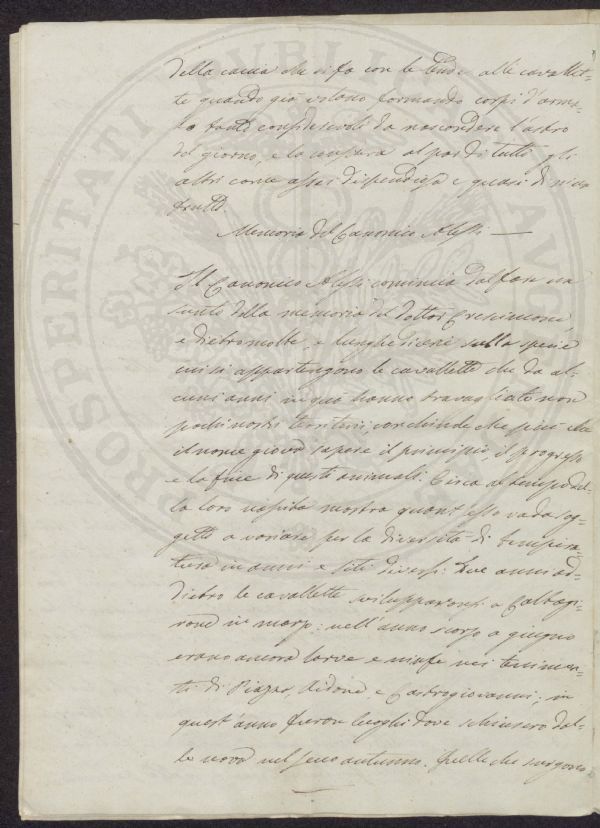 della caccia che si fa con le tende alle cavallet-
te quando già volano formando corpi d'arma-
ta tanto considerevoli da nascondere l'astro
del giorno, e la censura al par di tutti gli
altri come assai dispendiosa e quasi di niun
frutto.
Memoria del Canonico Alessi —
Il Canonico Alessi comincia dal fare un
sunto della memoria del Dottor Crescimone,
e dietro molte, e lunghe dicerie sulla specie
cui si appartengono le cavallette che da al-
cuni anni in qua hanno travagliato non
pochi nostri territorii, conchiude che più che
il nome giova sapere il principio, il progresso
e la fine di questi animali. Circa al tempo del-
la loro nascita mostra quant'esso vada sog-
getto a variare per la diversità di tempera-
tura in anni e siti diversi. Due anni ad-
dietro le cavallette svilupparonsi a Caltagi-
rone in marzo: nell'anno scorso a giugno
erano ancora larve e ninfe nei tenimen-
ti di Piazza, Aidone e Castrogiovanni; in
quest'anno furon luoghi dove schiusero dal-
le uova nel autunno. Quelle che sorgono